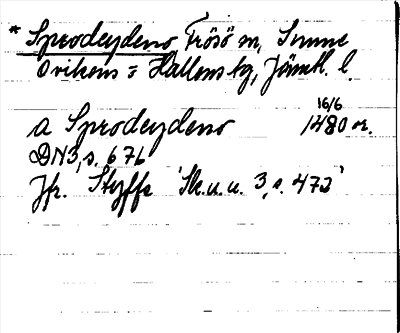 * Sprodeydeno Frösö m, Sunne
Ovikens = Hallens tg, Jämtl. l.
16/6
a Sprodeydeno 1480 or.
DN3, s. 676
Jfr. Styffe Sk.u.u. 3, s. 472